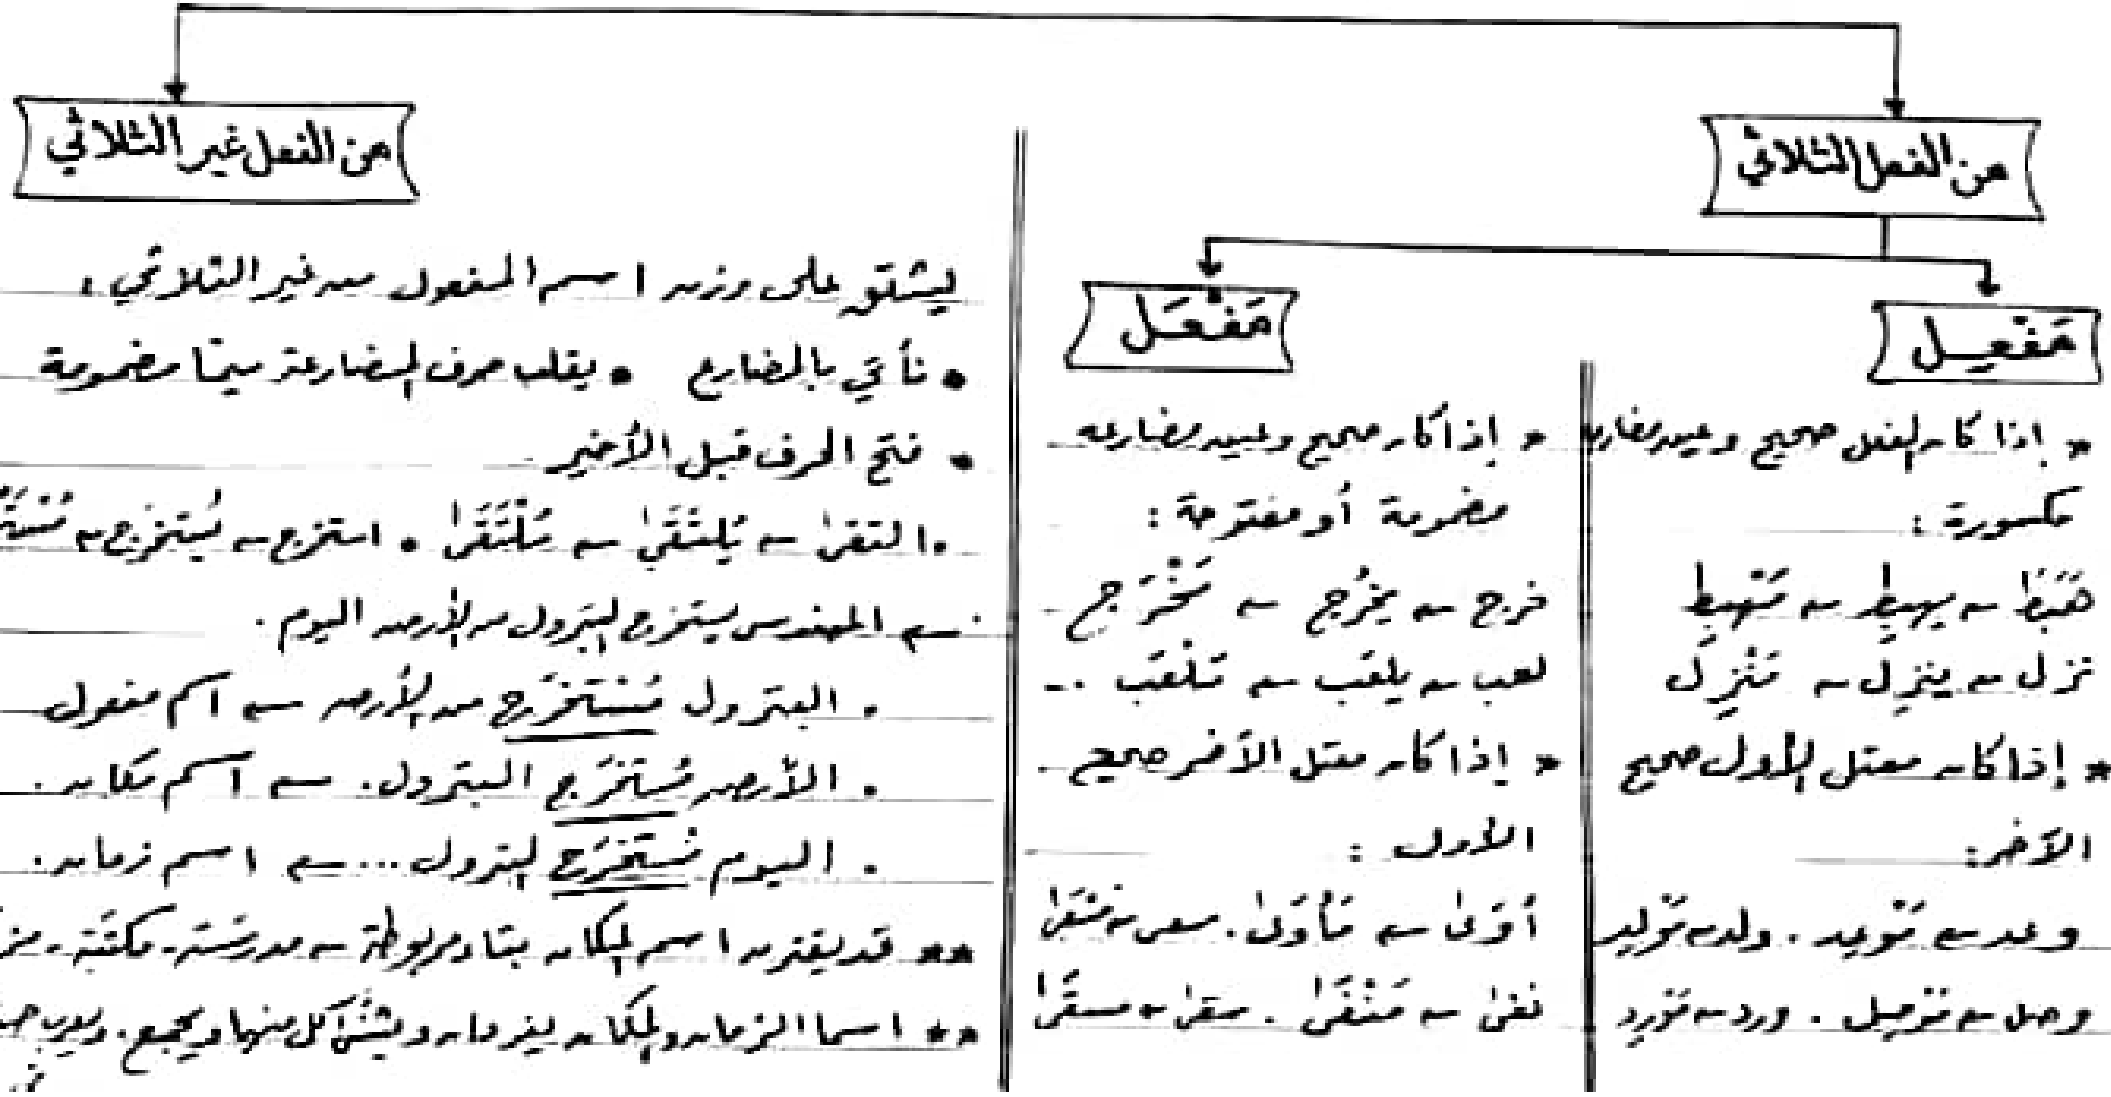 من الفعل الثلاثي
من الفعل غير الثلاثي
مَفْعِـل
* إذا كان الفعل صحيح وعين مضارعه
مكسورة :
هَبَطَ ← يهبِط ← مَهْبِط
نزل ← ينزِل ← مَنْزِل
* إذا كان معتل الأول صحيح
الآخر :
وعد ← مَوْعِد . ولد ← مَوْلِد
وصل ← مَوْصِل . ورد ← مَوْرِد
مَفْعَـل
* إذا كان صحيح وعين مضارعه
مضمومة أو مفتوحة :
خرج ← يخرُج ← مَخْرَج
لعب ← يلعَب ← مَلْعَب ..
* إذا كان معتل الآخر صحيح
الأول :
أوَى ← مَأْوَى . سعى ← مَسْعَى
نفى ← مَنْفَى . سقى ← مسقَى
يشتق على وزن اسم المفعول من غير الثلاثي :
• نأتي بالمضارع • يقلب حرف المضارعة ميمًا مضمومة
• فتح الحرف قبل الأخير
. التقى ← يَلتقي ← مُلْتَقَى . استخرج ← يَستخرج ←
← المهندس يستخرج البترول من الأرض اليوم .
. البترول مُسْتَخْرَج من الأرض ← اسم مفعول
. الأرض مُستَخْرَج البترول . ← اسم مكان .
. اليوم مُستَخْرَج البترول ... ← اسم زمان .
** قد يقترن اسم المكان بتاء مربوطة ← مدرَسَة - مكتَبَة -
** اسما الزمان والمكان يفردان ويُثَنَّى كل منهما ويجمع .